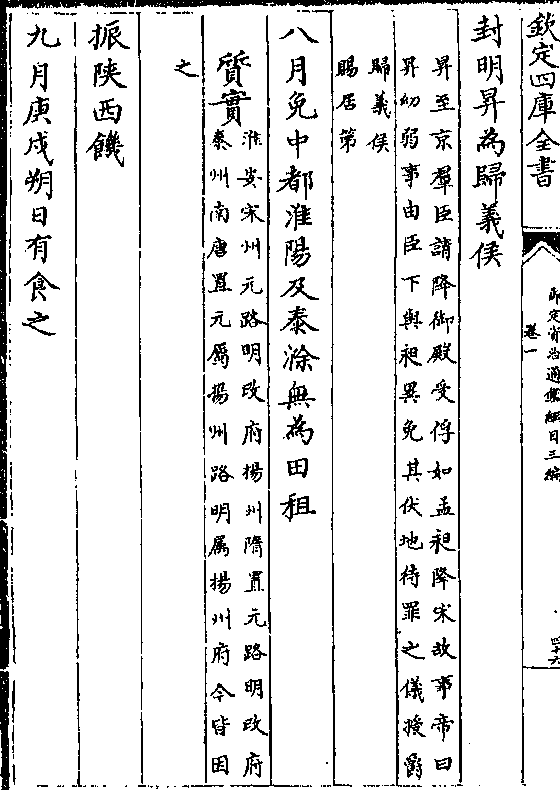 欽定四庫全書
御定資治通鑑綱目三編
卷一
四十六
封明昇為歸義侯
昇至京羣臣請降御殿受俘如孟昶降宋故事帝曰
昇幼弱事由臣下與昶異免其伏地待罪之儀授爵
歸義侯
賜居第
八月免中都淮陽及泰滁無為田租
質實
淮安宋州元路明改府揚州隋置元路明改府
泰州南唐置元屬揚州路明屬揚州府今皆因
之
振陜西饑
九月庚戌朔日有食之